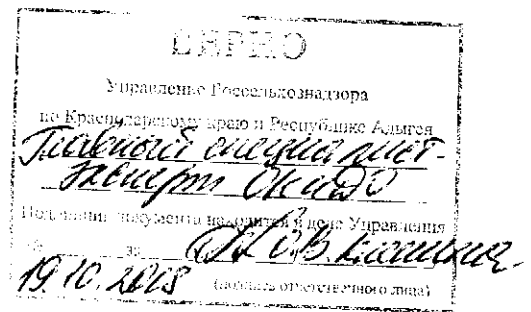 ВЕРНО
Управление Россельхознадзора
по Краснодарскому краю и Республике Адыгея
Главный специалист-
эксперт
Подлинник документа находится в деле Управления
№ за О.В.
19.10.2018 (подпись ответственного лица)